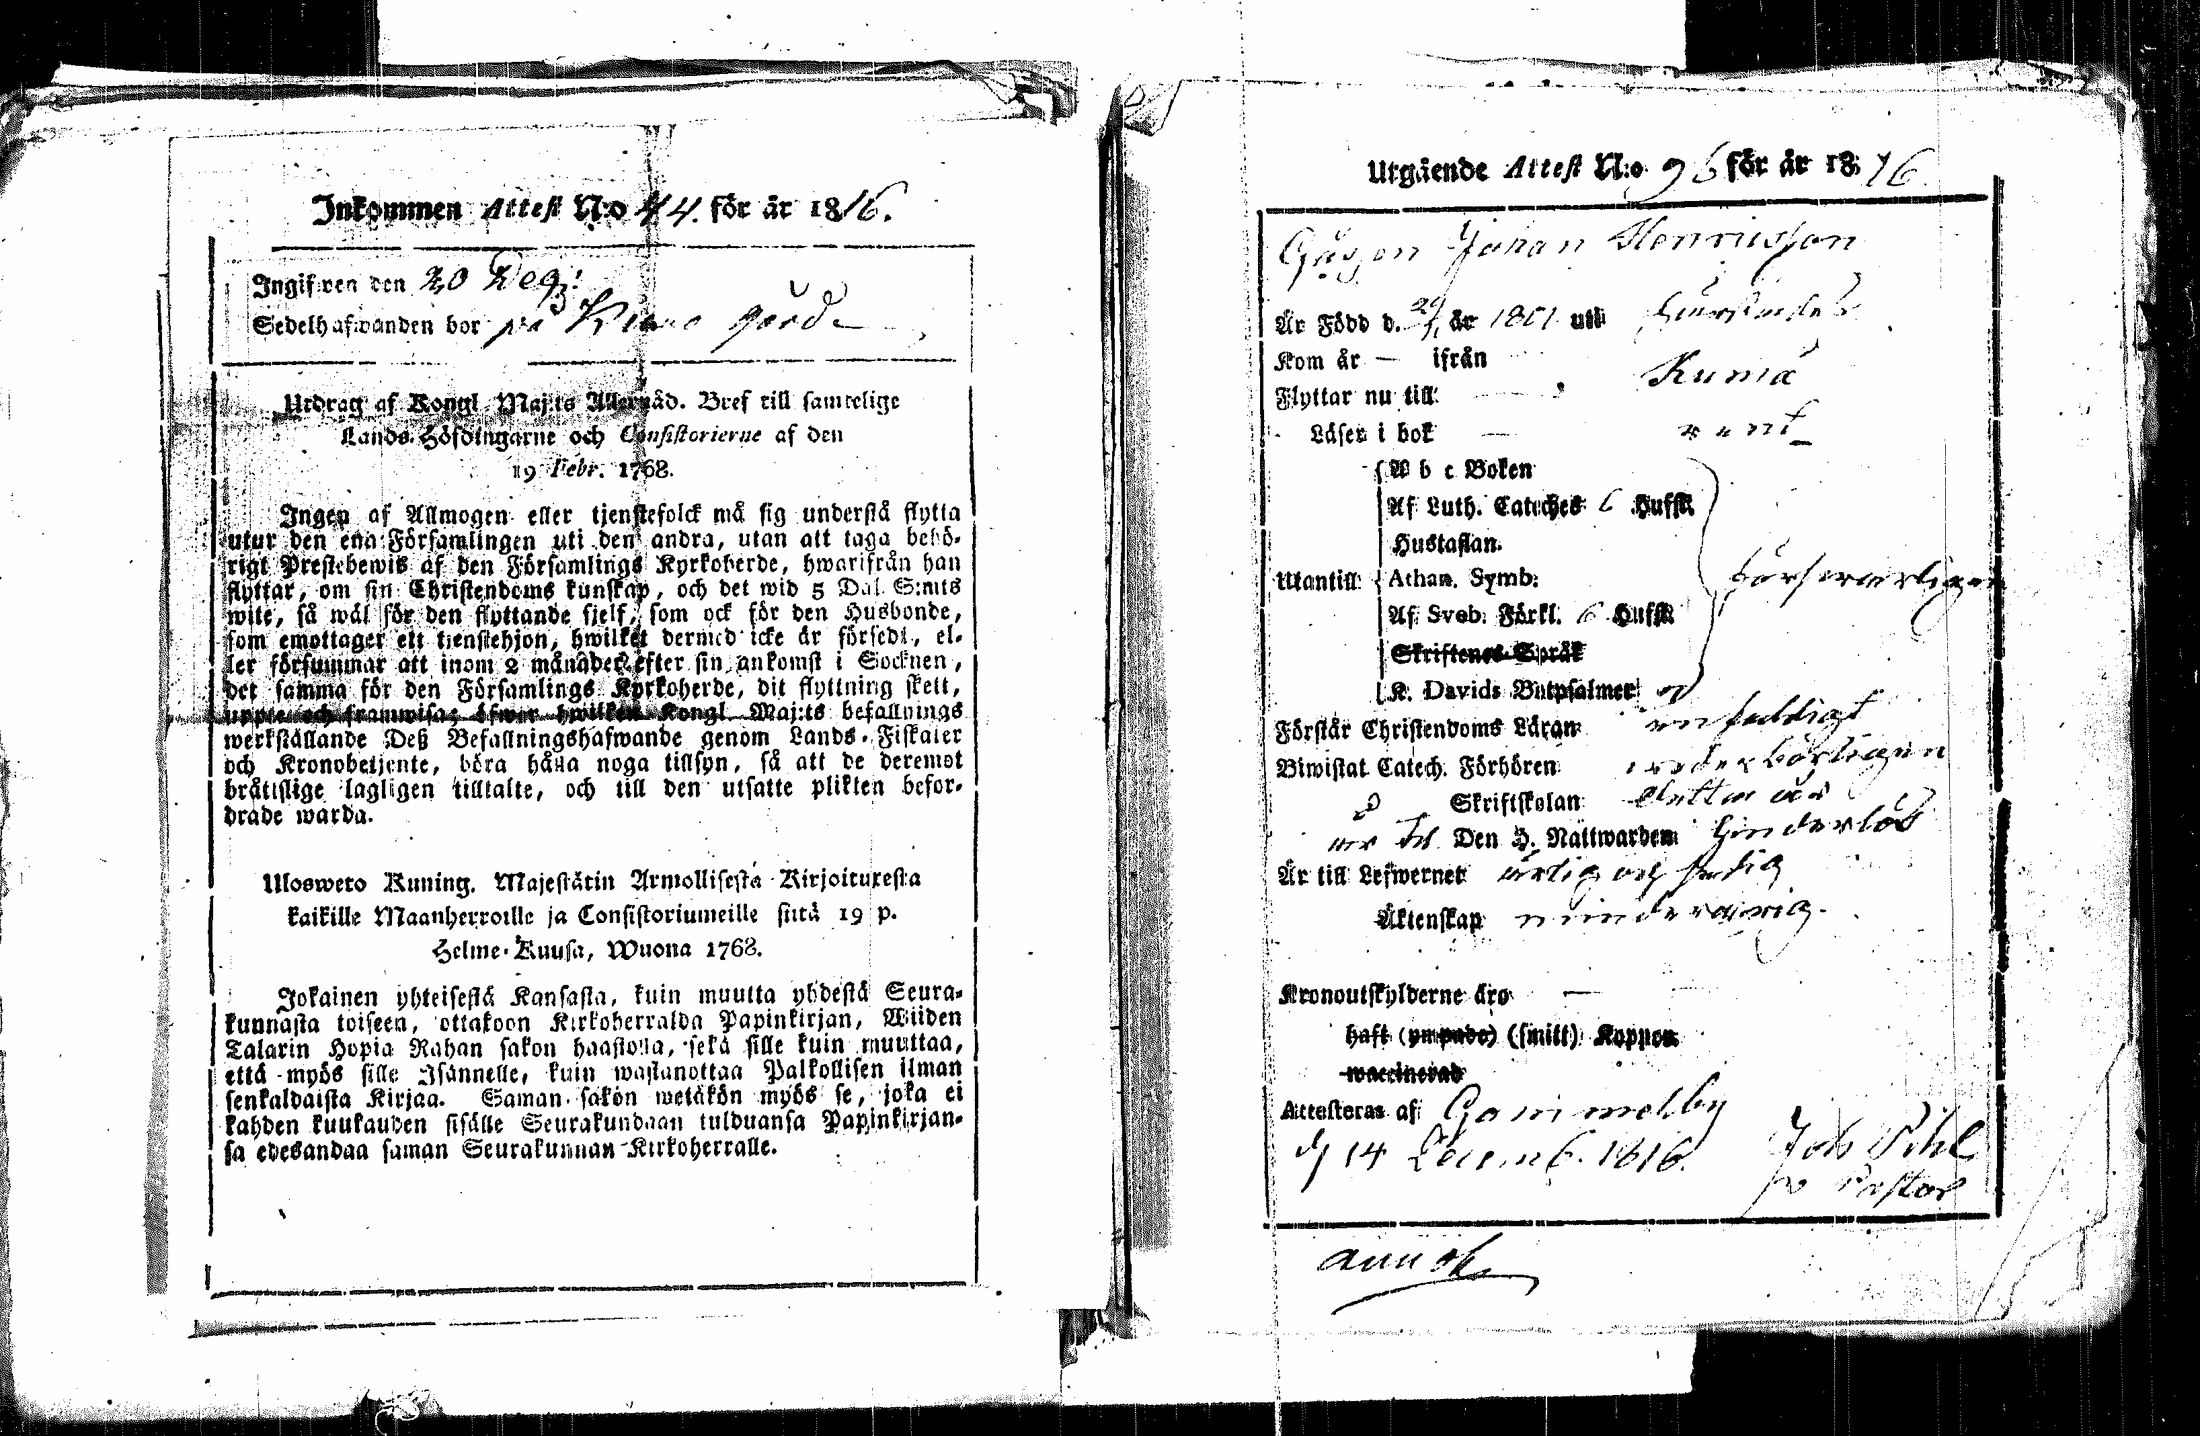 Inkommen Attest N:o 44. för år 1816.
Ingifven den 20 Dec:
Sedelhafwanden bor på gård
Utdrag af Kongl. Maj:ts Allernåd. Bref till samtelige
Lands-Höfdingarne och Consistorierne af den
19 Febr. 1768.
Ingen af Allmogen eller tjenstefolck må sig understå flytta
utur den ena Församlingen uti den andra, utan att taga behö-
rigt Prestebewis af den Församlings Kyrkoherde, hwarifrån han
flyttar, om sin Christendoms kunskap, och det wid 5 Dal. S:mts
wite, så wäl för den flyttande sjelf, som ock för den Husbonde,
som emottager ett tjenstehjon, hwilket dermed icke är försedt, el-
ler försummar att inom 2 månader efter sin ankomst i Socknen,
det samma för den Församlings Kyrkoherde, dit flyttning skett,
uppte och framwisa; öfwer hwilken Kongl. Maj:ts befallnings
werkställande Deß Befallningshafwande genom Lands-Fiskaler
och Kronobetjente, böra hålla noga tillsyn, så att de deremot
bråttslige lagligen tilltalte, och till den utsatte plikten befor-
drade warda.
Ulosweto Kuning. Majestätin Armollisesta Kirjoituxesta
kaikille Maanherroille ja Consistoriumeille siitä 19 p.
Helme-Kuusa, Wuona 1768.
Jokainen yhteisestä Kansasta, kuin muutta yhdestä Seura-
kunnasta toiseen, ottakoon Kirkoherralda Papinkirjan, Wiiden
Talarin Hopia Rahan sakon haastolla, sekä sille kuin muuttaa,
että myös sille Isännelle, kuin wastanottaa Palkollisen ilman
senkaldaista Kirjaa. Saman sakon wetäkön myös se, joka ei
kahden kuukauden sisälle Seurakundaan tulduansa Papinkirjan-
sa edesandaa saman Seurakunnan Kirkoherralle.
Utgående Attest N:o 96 för år 1816
Gåssen Johan Henricsson
Är Född d. år 1801 uti
Kom år — ifrån
Flyttar nu till: Kumå
Läser i bok — rent
A b c Boken
Af Luth. Cateches 6 Hufst.
Hustaflan.
Utantill: Athan. Symb: förswarligen
Af Sveb. Förkl. 6 Hufst.
Skriftenes Språk
K. Davids Botpsalmer
Förstår Christendoms Läran enfaldigt
Biwistat Catech. Förhören wederbörligen
Skriftskolan detta år
Den H. Nattwarden hinderlös
Är till Lefwernet ärlig och
Äktenskap minderårig.
Kronoutskylderne äro —
haft (ympade) (smitt) Koppor
waccinerad
Attesteras af Gammelby
d 14 Decemb. 1816. Joh Pihl
Pastor